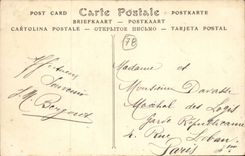 POST CARD Carte Postale POSTKARTE
BRIEFKAART — POSTKAART
CARTOLINA POSTALE — ОТКРЫТОЕ ПИСЬМО — TARJETA POSTAL
78
Affectueux
Souvenir
Madame et
Monsieur
Maréchal des Logis
Garde Républicaine
4, Rue
Paris